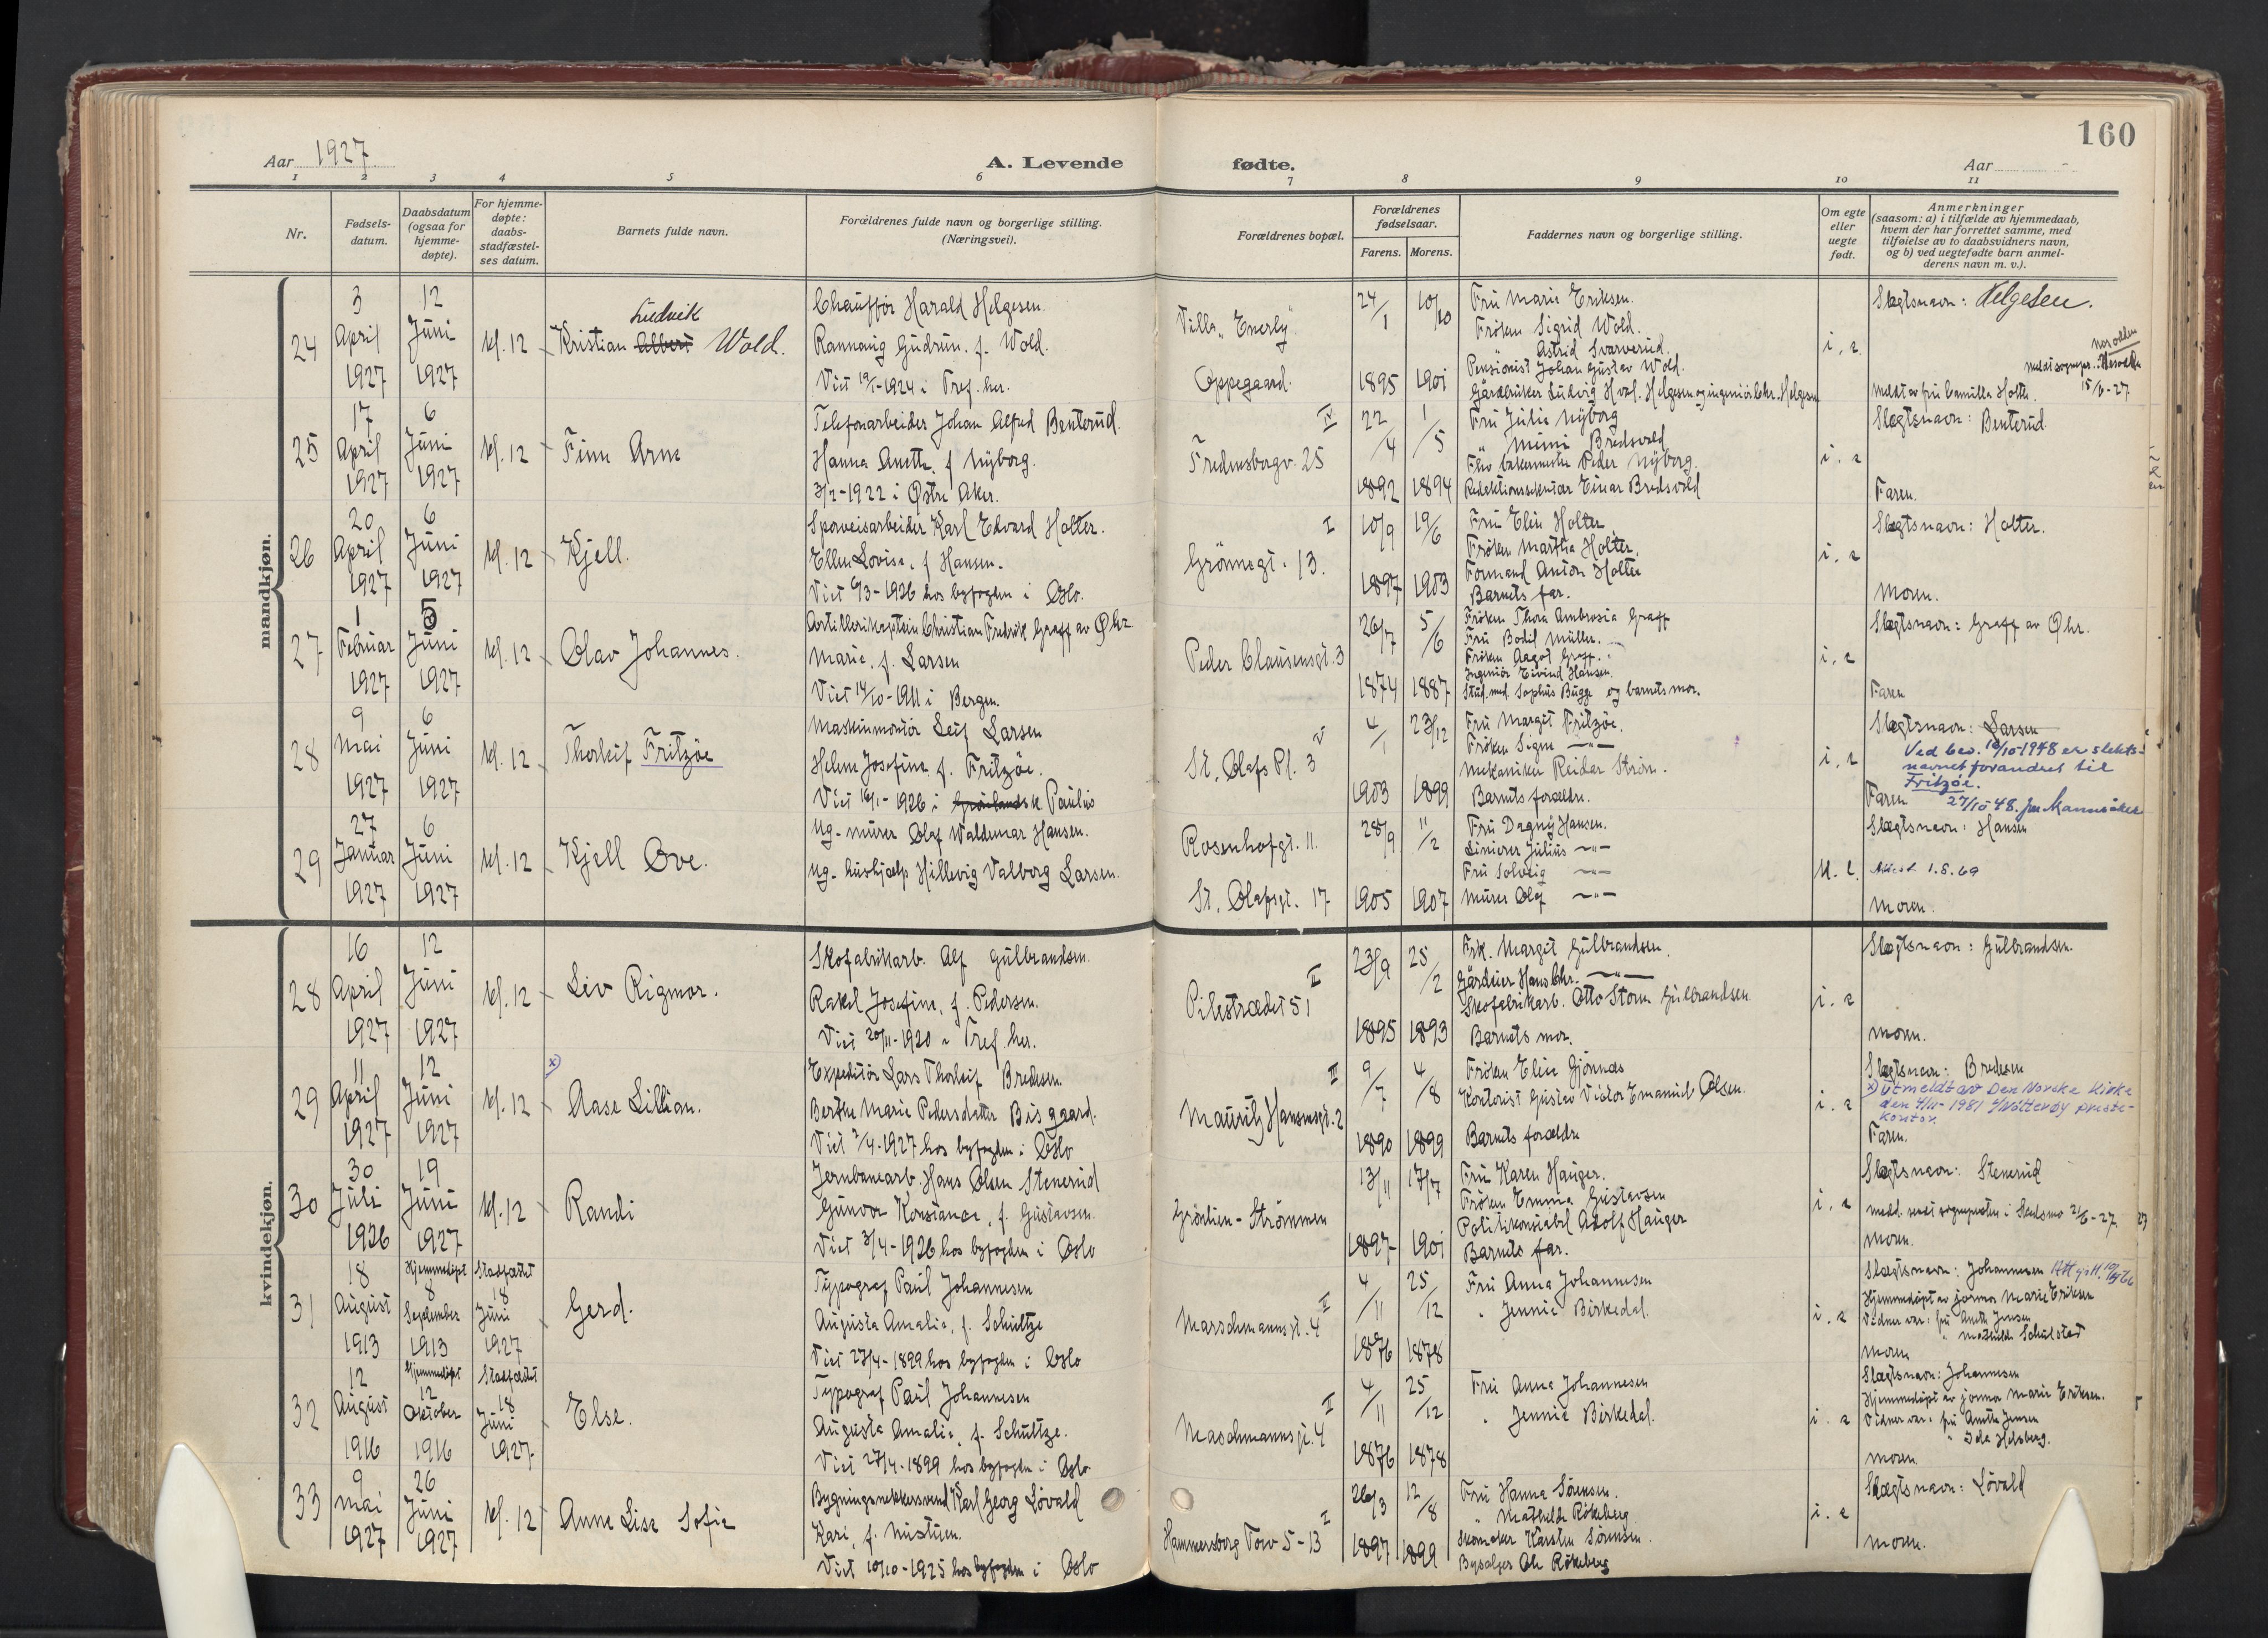 160
Aar 1927
A. Levende fødte.
Aar
1 2 3 4 5 6 7 8 9 10 11
Nr.
Fødsels-
datum.
Daabsdatum
(ogsaa for
hjemme-
døpte).
For hjemme-
døpte:
daabs-
stadfæstel-
ses datum.
Barnets fulde navn.
Forældrenes fulde navn og borgerlige stilling.
(Næringsvei).
Forældrenes bopæl.
Forældrenes
fødselsaar.
Farens. Morens.
Faddernes navn og borgerlige stilling.
Om egte
eller
uegte
født.
Anmerkninger
(saasom: a) i tilfælde av hjemmedaab,
hvem der har forrettet samme, med
tilføielse av to daabsvidners navn,
og b) ved uegtefødte barn anmel-
derens navn m. v.).
mandkjøn.
24
3 April 1927
12 Juni 1927
kl. 12
Ludvik
Kristian Albert Wold.
Chauffør Harald Helgesen.
Rannaug Gudrun. f. Wold.
Viet 19/1-1924 i Tref. her.
Villa "Enerly"
Oppegaard.
24/1 1895
10/10 1901
Fru Marie Eriksen.
Frøken Sigrid Wold.
" Astrid Svarverud.
Pensionist Johan Gustav Wold.
Gårdbruker Ludvig Hvol. Helgesen og ingeniør Chr. Helgesen
i. e.
Slegtsnavn: Helgesen.
15/6-27
Meldt av fru Camilla Holter.
25
17 April 1927
6 Juni 1927
kl. 12
Finn Arne
Telefonarbeider Johan Alfred Benterud.
Hanna Anette, f Nyborg.
3/2-1922 i Østre Aker.
IV
Fredensborgv. 25
22/4 1892
1/5 1894
Fru Julie Nyborg
" Mimi Bredsvold
Peder Nyborg.
Redaktionssekretær Einar Bredsvold
i. e
Slegtsnavn: Benterud.
Faren.
26
20 April 1927
6 Juni 1927
kl. 12
Kjell.
Sporveisarbeider Karl Edvard Holter.
Ellen Lovise, f Hansen.
Viet 6/3-1926 hos byfogden i Oslo.
I
Grønnegt. 13.
10/9 1897
19/6 1903
Fru Elin Holter
Frøken Martha Holter.
Formand Anton Holter
Barnets far.
i. e
Slegtsnavn: Holter.
Moren.
27
1 Februar 1927
5 Juni 1927
kl. 12
Olav Johannes.
Artillerikaptein Christian Fredrik Graff av Ohr
Marie, f. Larsen
Viet 14/10-1911 i Bergen.
Peder Clausensgt. 3
26/7 1874
5/6 1887
Frøken Thora Ambrosia Graff
Fru Bodil Müller.
Frøken Aagot Graff.
Ingeniør Eivind Hansen
Stud. med. Sophus Bugge og barnets mor.
i. e
Slegtsnavn: Graff av Ohr.
Faren
28
9 Mai 1927
6 Juni 1927
kl. 12
Thorleif Fritzøe
Maskinmontør Leif Larsen
Helene Josefine f. Fritzøe.
Viet 16/1-1926 i Grønlandsk Paulus
V
St. Olafs Pl. 3
4/1 1903
23/12 1899
Fru Margit Fritzøe.
Frøken Signe -"-
Mekaniker Reidar Strøm.
Barnets forældre.
i. e
Slegtsnavn: Larsen
Ved bev. 16/10-1948 er slekts-
navnet forandret til
Fritzøe.
27/10 48.
Faren
29
27 Januar 1927
6 Juni 1927
kl. 12
Kjell Ove.
Ug. murer Olaf Waldemar Hansen.
Ug. hushjælp Hillevig Valborg Larsen.
Rosenhofgt. 11.
St. Olafsgt. 17
28/9 1905
11/2 1907
Fru Dagny Hansen.
Linierer Julius -"-
Fru Solveig -"-
Murer Olaf -"-
U. e.
Slegtsnavn: Hansen
Attest 1.8.69
Moren.
kvindekjøn.
28
16 April 1927
12 Juni 1927
kl. 12
Liv Rigmor.
Skofabrikarb. Alf Gulbrandsen.
Rakel Josefine, f. Pedersen.
Viet 20/11-1920 i Tref. her.
II
Pilestrædet 51
23/9 1895
25/2 1893
Frk. Margit Gulbrandsen.
Gårdeier Hans Chr. -"-
Skofabrikarb. Otto Storm Gulbrandsen
Barnets mor.
i. e
Slegtsnavn: Gulbrandsen.
Moren.
29
11 April 1927
12 Juni 1927
kl. 12
x)
Aase Lillian.
Expeditør Lars Thorleif Bredesen.
Berthe Marie Pedersdatter Bisgaard.
Viet 2/4-1927 hos byfogden i Oslo
III
Mauritz Hansensgt. 2
9/7 1890
4/8 1899
Frøken Elise Gjønnæs
Kontorist Gustav Victor Emanuel Olsen.
Barnets forældre
i. e
Slegtsnavn: Bredesen
x) Utmeldt av Den Norske Kirke
den 4/11-1981 v/Nøtterøy preste-
kontor.
Faren.
30
30 Juli 1926
19 Juni 1927
kl. 12
Randi
Jernbanearb. Hans Olsen Stenerud
Gunvor Konstance, f. Gustavsen.
Viet 3/4-1926 hos byfogden i Oslo
Grønlien-Strømmen
13/11 1897
17/7 1901
Fru Karen Hauger.
Frøken Emma Gustavsen
Politikonstabel Adolf Hauger
Barnets far.
i. e
Slegtsnavn: Stenerud
Meld. sendt sognepresten i Skedsmo 21/6-27.
Moren.
31
18 August 1913
Hjemmedøpt 8 September 1913
Stadfæstet 18 Juni 1927
Gerd.
Typograf Paul Johannesen
Augusta Amalie, f. Schultze
Viet 27/4-1899 hos byfogden i Oslo
II
Marschmannsgt. 4
4/11 1876
25/12 1878
Fru Anna Johannesen
" Jennie Birkedal.
i. e
Slegtsnavn: Johannesen
Hjemmedøpt av jormor Marie Eriksen
Vidner var: fru Anette Jensen
" Mathilde Schulstad
Moren
32
12 August 1916
Hjemmedøpt 12 Oktober 1916
Stadfæstet 18 Juni 1927
Else.
Typograf Paul Johannesen
Augusta Amalie, f. Schultze.
Viet 27/4-1899 hos byfogden i Oslo
II
Maschmannsgt. 4
4/11 1876
25/12 1878
Fru Anna Johannesen
" Jennie Birkedal.
i. e
Slegtsnavn: Johannesen
Hjemmedøpt av jormor Marie Eriksen.
Vidner var: fru Anette Jensen
" Ida Helsberg.
Moren
33
9 Mai 1927
26 Juni 1927
kl. 12
Anne Lise Sofie
Bygningssnekkersvend Karl Georg Løvald
Kari, f. Nistuen.
Viet 10/10-1925 hos byfogden i Oslo
I
Hammersborg Torv 5-13
26/3 1897
12/8 1899
Fru Hanna Sørensen.
" Mathilde Røkeberg.
Skomaker Karsten Sørensen.
Bysælger Ole Røkeberg
i. e
Slegtsnavn: Løvald
Moren.